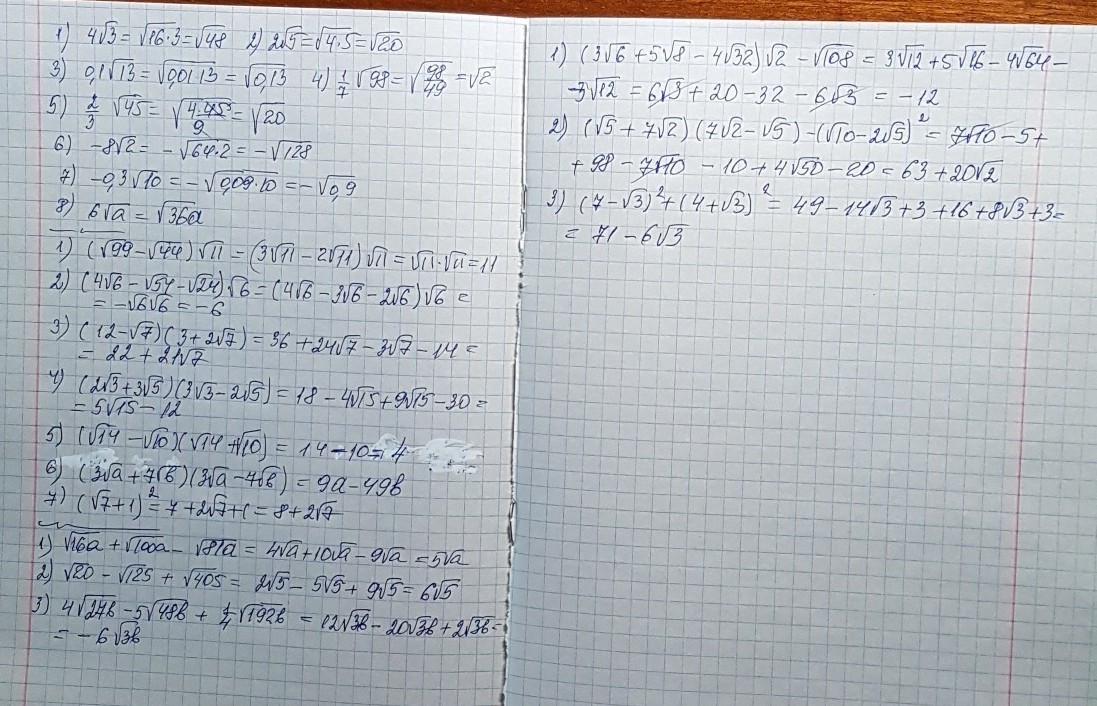 1) 4√3 = √16·3 = √48 2) 2√5 = √4·5 = √20
3) 0,1√13 = √0,01·13 = √0,13 4) 1/7 √98 = √98/49 = √2
5) 2/3 √45 = √4·45/9 = √20
6) -8√2 = -√64·2 = -√128
7) -0,3√10 = -√0,09·10 = -√0,9
8) 6√a = √36a
1) (√99 - √44)√11 = (3√11 - 2√11)√11 = √11·√11 = 11
2) (4√6 - √54 - √24)√6 = (4√6 - 3√6 - 2√6)√6 =
= -√6√6 = -6
3) (12 - √7)(3 + 2√7) = 36 + 24√7 - 3√7 - 14 =
= 22 + 21√7
4) (2√3 + 3√5)(3√3 - 2√5) = 18 - 4√15 + 9√15 - 30 =
= 5√15 - 12
5) (√14 - √10)(√14 + √10) = 14 - 10 = 4
6) (3√a + 7√b)(3√a - 7√b) = 9a - 49b
7) (√7 + 1)² = 7 + 2√7 + 1 = 8 + 2√7
1) √16a + √100a - √81a = 4√a + 10√a - 9√a = 5√a
2) √20 - √125 + √405 = 2√5 - 5√5 + 9√5 = 6√5
3) 4√27b - 5√48b + 1/4 √192b = 12√3b - 20√3b + 2√3b =
= -6√3b
1) (3√6 + 5√8 - 4√32)√2 - √108 = 3√12 + 5√16 - 4√64 -
-3√12 = 6√3 + 20 - 32 - 6√3 = -12
2) (√5 + 7√2)(7√2 - √5) - (√10 - 2√5)² = 7√10 - 5 +
+ 98 - 7√10 - 10 + 4√50 - 20 = 63 + 20√2
3) (7 - √3)² + (4 + √3)² = 49 - 14√3 + 3 + 16 + 8√3 + 3 =
= 71 - 6√3